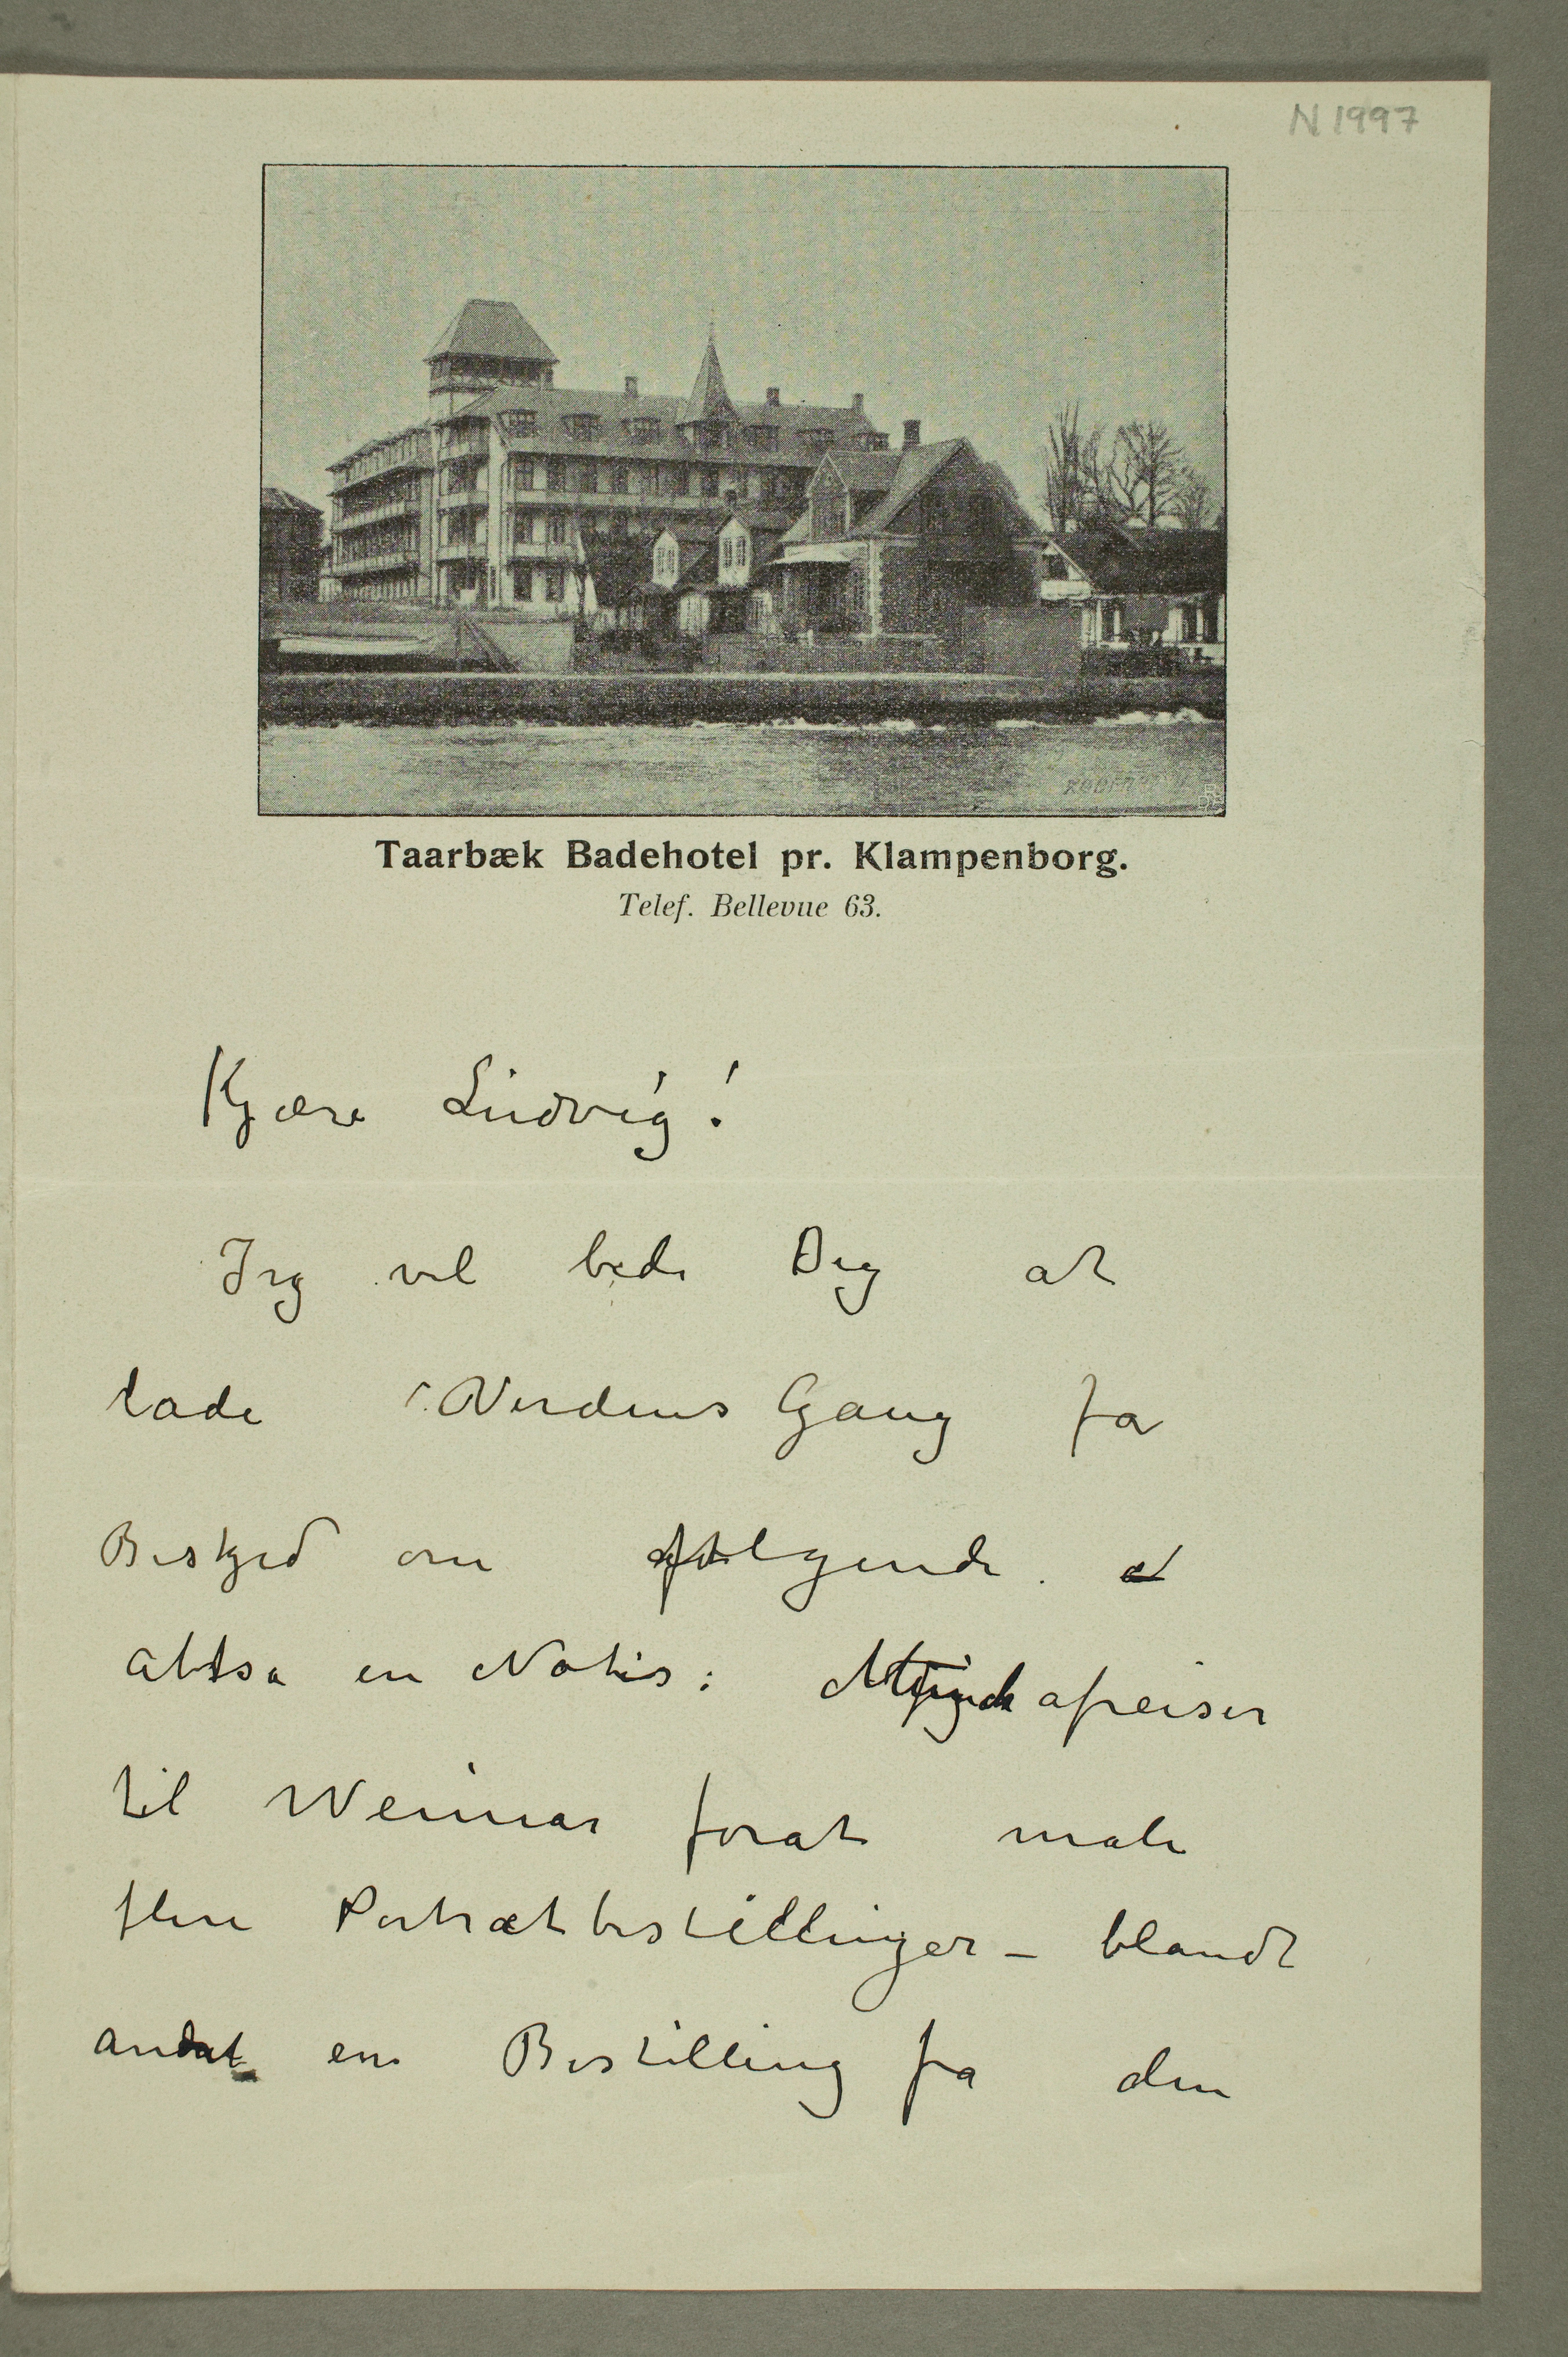 N 1997
Taarbæk Badehotel pr. Klampenborg.
Telef. Bellevue 63.
Kjære Ludvig!
Jeg vil bede Dig at
lade Verdens Gang fa
Beskjed om følgende.
altsa en Notis: Munch afreiser
til Weimar forat male
flere Portrætbestillinger – blandt
andat en Bestilling fra den